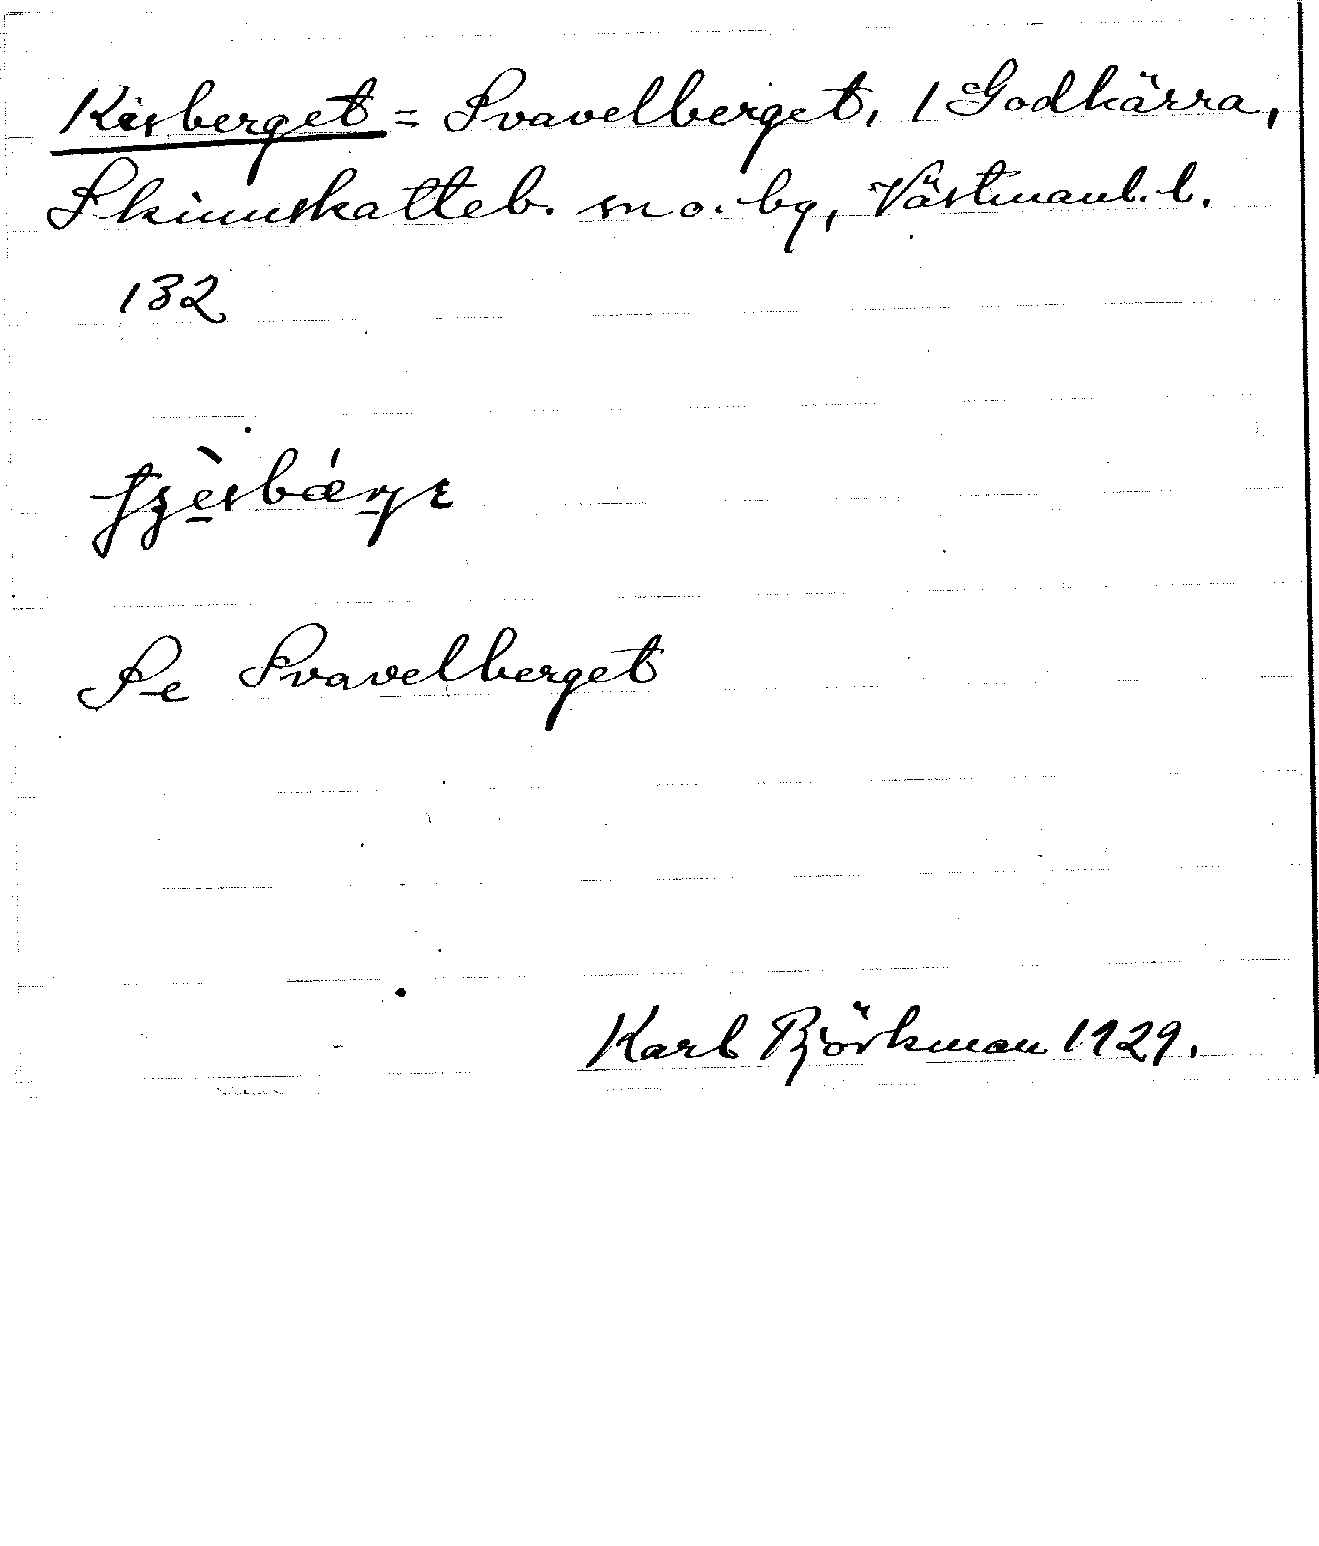 Kisberget = Svavelberget, 1 Godkärra,
Skinnskatteb. sn o. bg, Västmanl. l.
132
Se Svavelberget
Karl Björkman 1929.